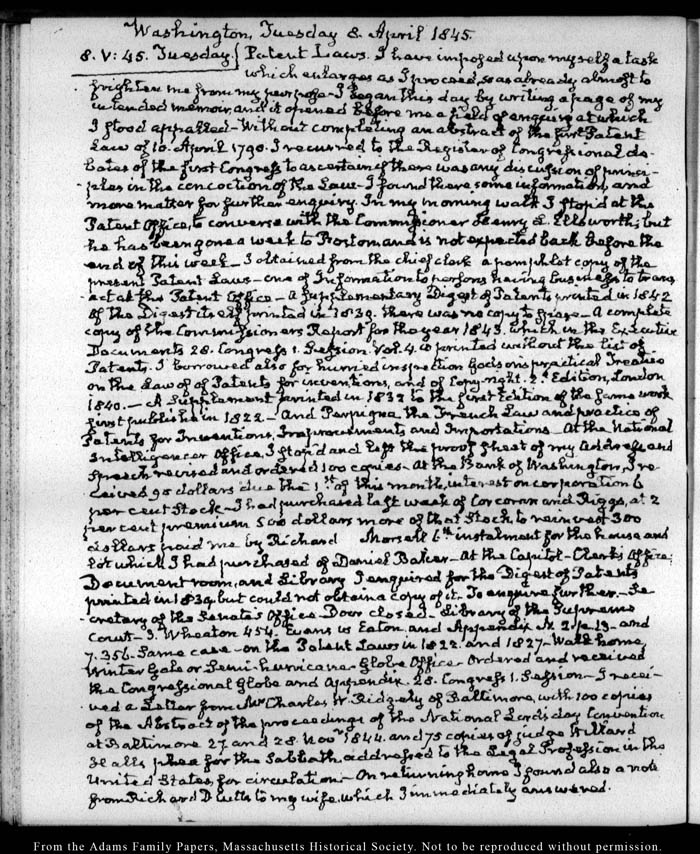 Washington, Tuesday 8. April 1845.
8. V: 45. Tuesday. } Patent Laws. I have imposed upon myself a task
which enlarges as I proceed, so as already almost to
frighten me from my purpose - I began this day by writing a page of my
intended memoir, and it opened before me a field of enquiry at which
I stood appalled - Without completing an abstract of the first Patent
Law of 10. April 1790. I recurred to the Register of Congressional de-
bates of the first Congress to ascertain if there was any discussion of princi-
ples in the concoction of the Law - I found there some information, and
more matter for further enquiry. In my morning walk I stop'd at the
Patent Office, to converse with the Commissioner Henry L. Ellsworth; but
he has been gone a week to Boston and is not expected back before the
end of this week - I obtained from the chief clerk a pamphlet copy of the
present Patent Laws - one of Information to persons having business to trans-
act at the Patent Office - A supplementary Digest of Patents printed in 1842
Of the Digest itself printed in 1839. there was no copy to spare - A complete
copy of the Commissioners Report for the year 1843. which in the Executive
Documents 28. Congress 1. Session Vol. 4. is printed without the list of
Patents. I borrowed also for hurried inspection Godsons practical Treatise
on the Law of of Patents for inventions, and of Copy-right. 2. Edition, London
1840. - A Supplement printed in 1832 to the first Edition of the same work
first published in 1822 - And Perpigna the French Law and practice of
Patents for Inventions, Improvements and Importations - At the National
Intelligencer Office, I stop'd and left the proof sheet of my Address and
speech revised and ordered 100 copies - At the Bank of Washington, I re-
ceived 90 dollars due the 1st of this month, interest on corporation 6
per cent Stock - I had purchased last week of Corcoran and Riggs, at 2
per cent premium 500 dollars more of that Stock to reinvest 300
dollars paid me by Richard Morsell 6th instalment for the house and
lot which I had purchased of Daniel Baker - At the Capitol - Clerk's Office;
Document room, and Library I enquired for the Digest of Patents
printed in 1839 but could not obtain a copy of it. To enquire further. - Se-
cretary of the Senate's Office Door closed - Library of the Supreme
Court - 3. Wheaton 454. Evans vs Eaton, and Appendix N. 2. p 13 - and
7. 356. Same case - on the Patent Laws in 1822. and 1827 - Walk home
Winter Gale or Semi-hurricane - Globe Office - Ordered and received
the Congressional Globe and Appendix. 28. Congress 1. Session - I recei-
ved a Letter from Mr Charles W. Ridgely of Baltimore, with 100 copies
of the Abstract of the proceedings of the National Lord's day Convention
at Baltimore 27. and 28. Novr 1844. and 75 copies of judge Willard
Halls plea for the Sabbath, addressed to the Legal Profession in the
United States, for circulation - On returning home I found also a note
from Richard to my wife, which I immediately answered.
From the Adams Family Papers, Massachusetts Historical Society. Not to be reproduced without permission.